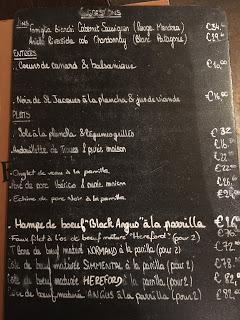 SUGGESTIONS
VINS
Famiglia Bianchi Cabernet Sauvignon (Rouge Mendoza) € 34
Chardonnay (Blanc Patagonie)
ENTRÉES
Coeurs de canard & balsamique
Noix de St Jacques à la plancha & jus de viande
PLATS
Sole à la plancha & légumes grillés € 32
Andouillette de Troyes & purée maison
Onglet de veau à la parrilla
Pavé de porc Ibérico & purée maison
Echine de porc Noir à la parrilla
Hampe de boeuf "Black Angus" à la parrilla
Faux filet à l'os de boeuf maturé "Hereford" (pour 2)
T Bone de boeuf maturé NORMAND à la parilla (pour 2) € 72
Côte de boeuf maturée SIMMENTAL à la parilla (pour 2) € 78
Côte de boeuf maturée HEREFORD à la parilla (pour 2) € 82
Côte de boeuf maturée ANGUS à la parrilla (pour 2)